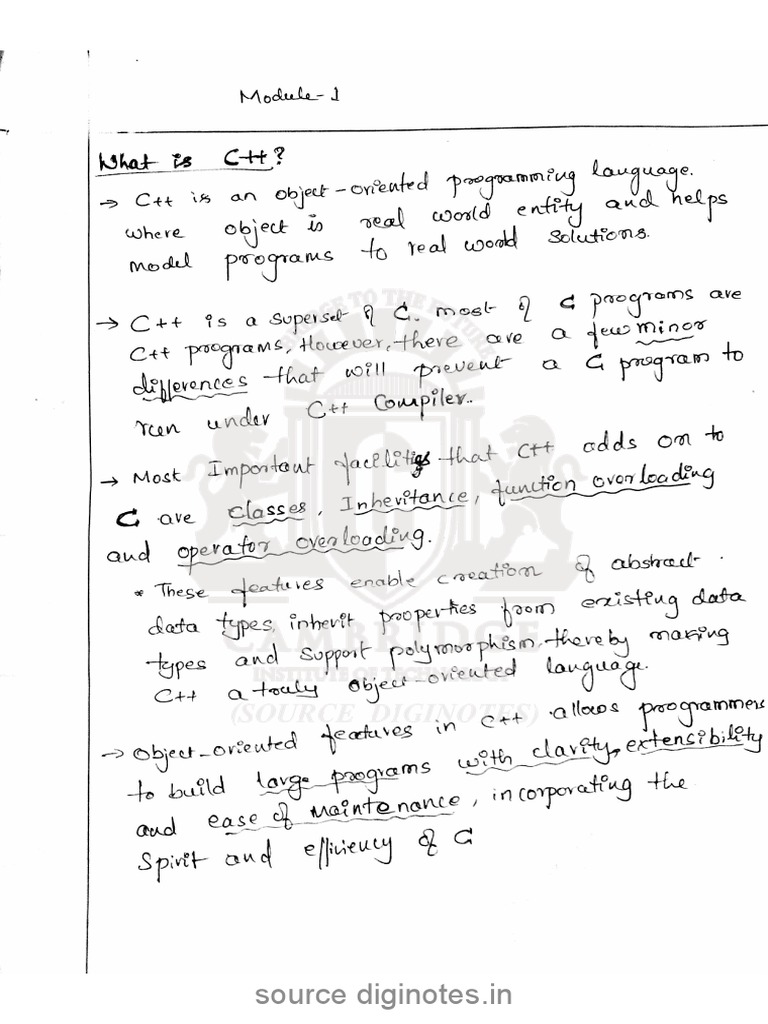 Module-1
What is C++?
→ C++ is an object-oriented programming language.
where object is real world entity and helps
model programs to real world solutions.
→ C++ is a superset of C. most of C programs are
C++ programs, However, there are a few minor
differences that will prevent a C program to
run under C++ Compiler.
→ Most Important facilities that C++ adds on to
C are classes, Inheritance, function overloading
and operator overloading.
* These features enable creation of abstract
data types, inherit properties from existing data
types and support polymorphism, thereby making
C++ a truly object-oriented language.
→ Object-oriented features in C++ allows programmers
to build large programs with clarity, extensibility
and ease of maintenance, incorporating the
Spirit and efficiency of C
CAMBRIDGE
INSTITUTE OF TECHNOLOGY
(SOURCE DIGINOTES)
source diginotes.in